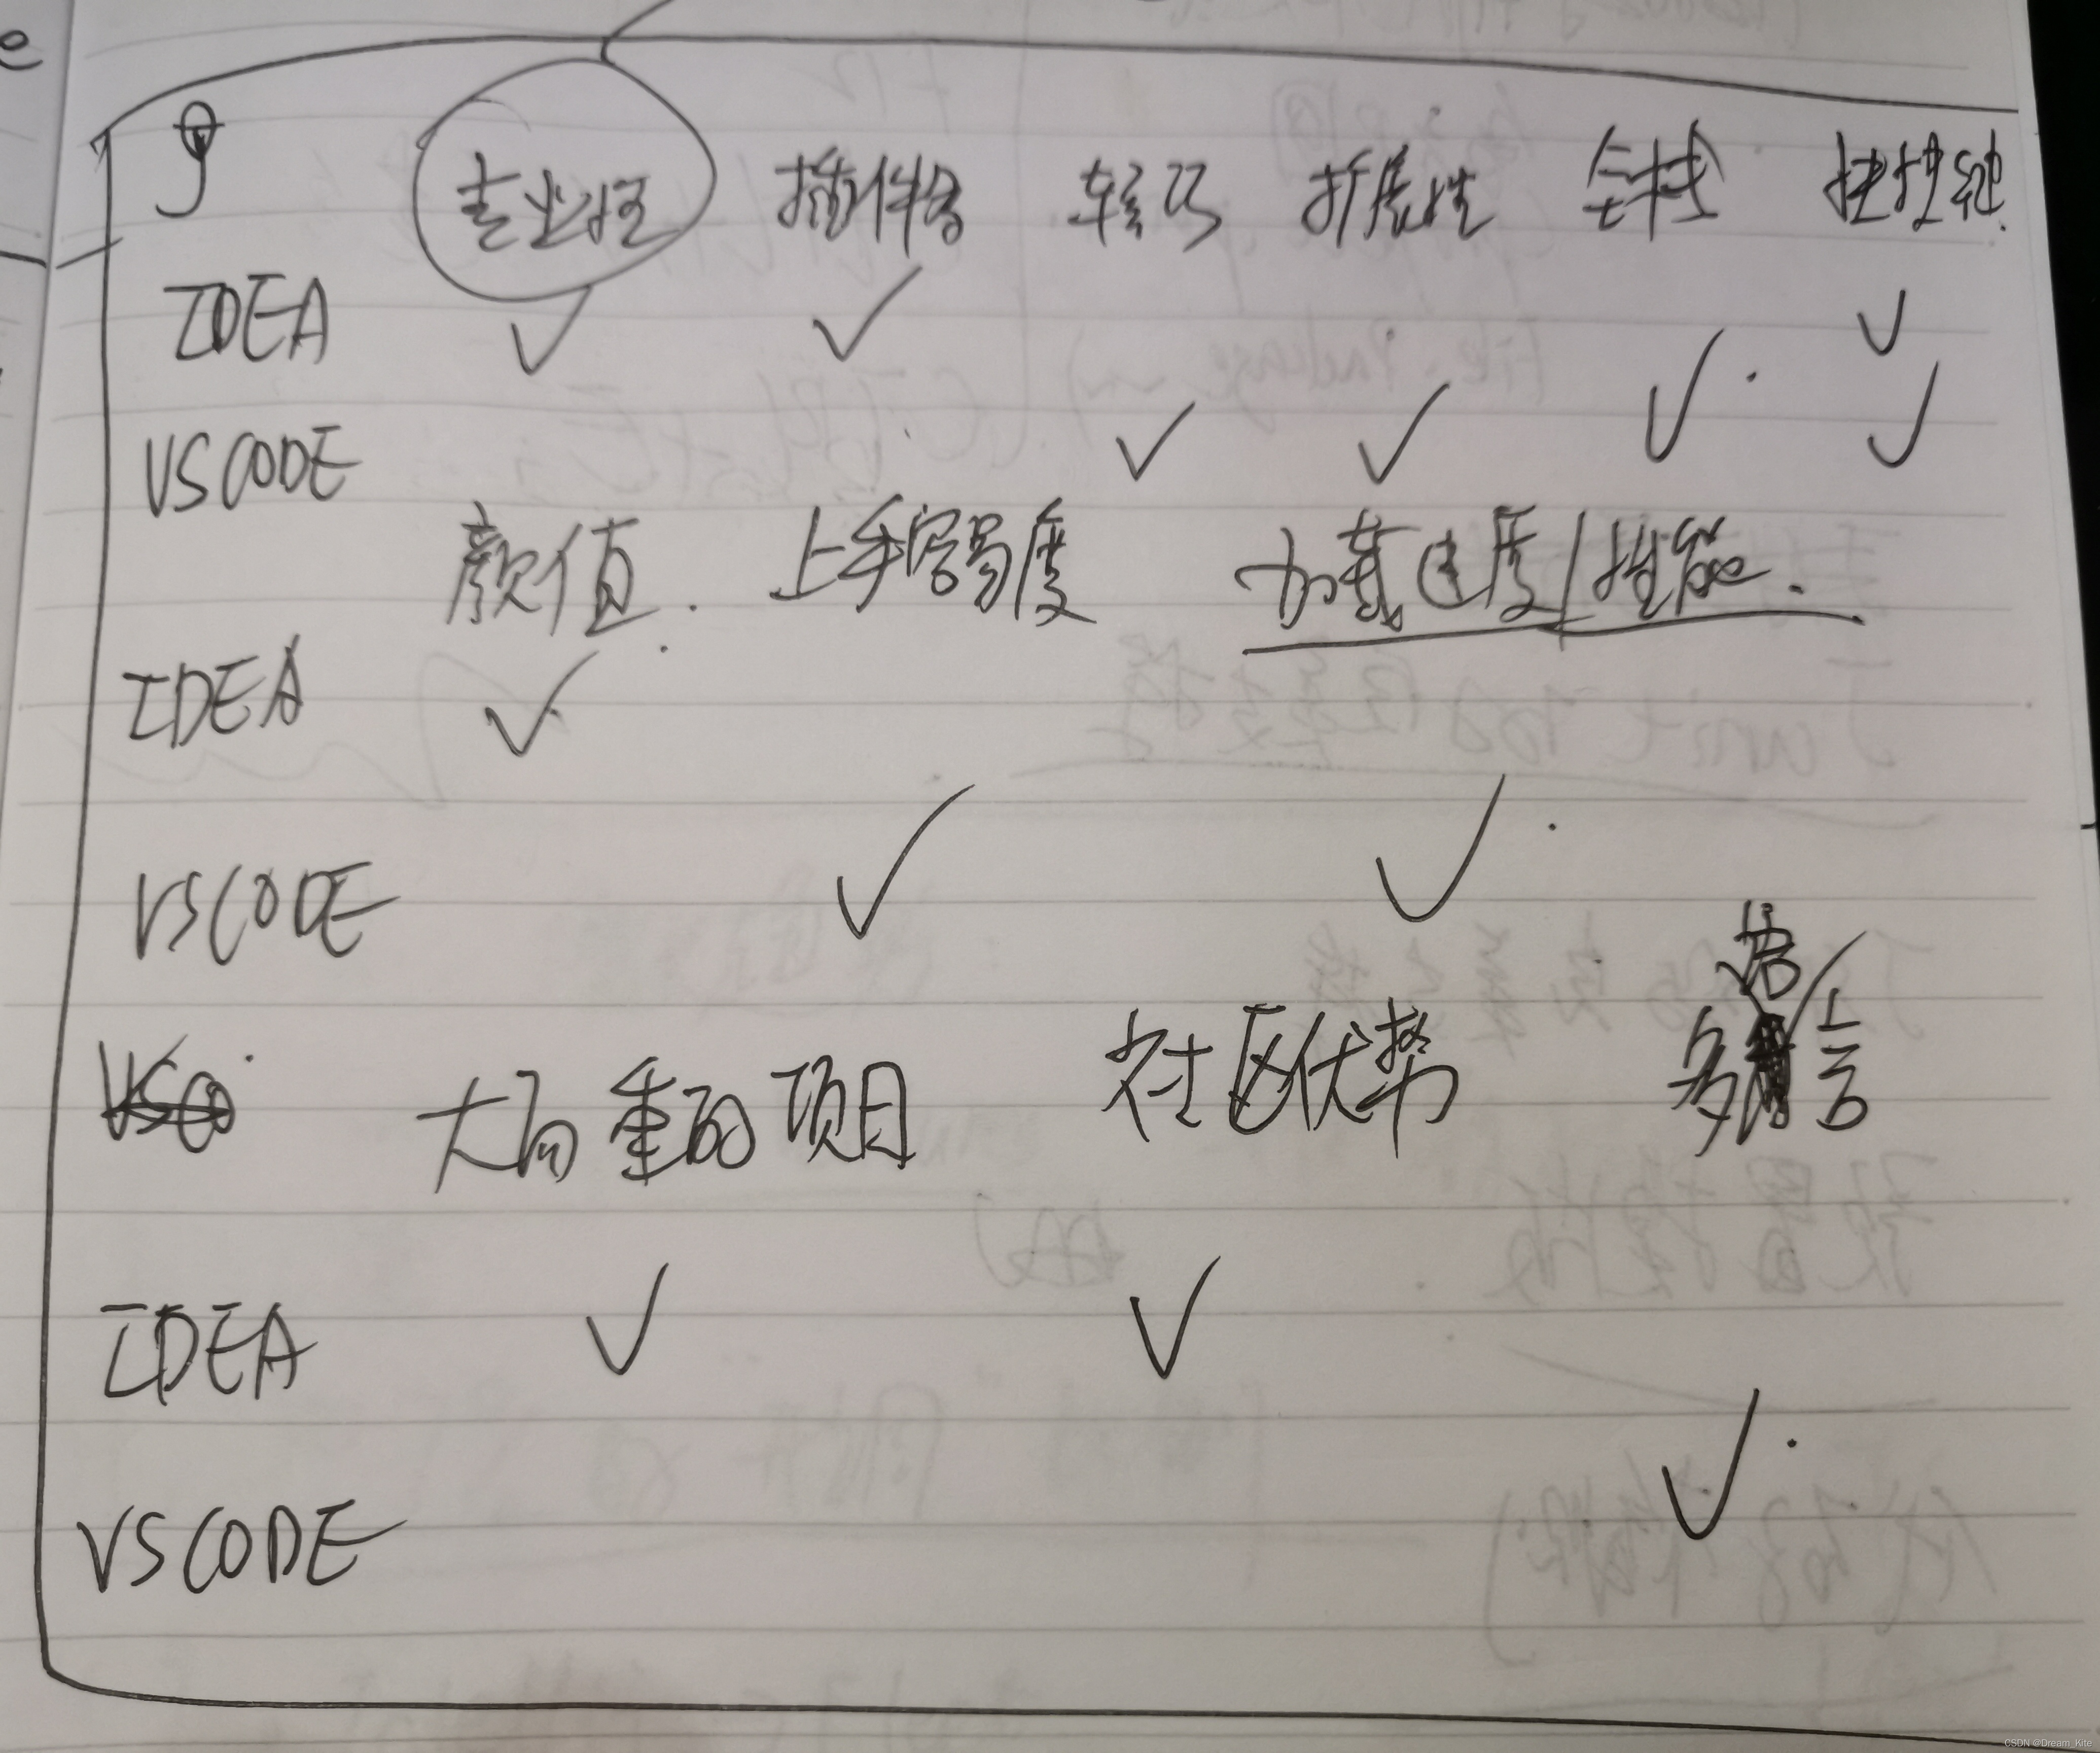 专业性 插件多 轻巧 扩展性 全栈 快捷键
IDEA ✓ ✓ ✓
VSCODE ✓ ✓ ✓ ✓
颜值. 上手容易度 加载速度/性能.
IDEA ✓
VSCODE ✓ ✓
大而重的项目 社区优势 多语言
IDEA ✓ ✓
VSCODE ✓
CSDN @Dream_Kite